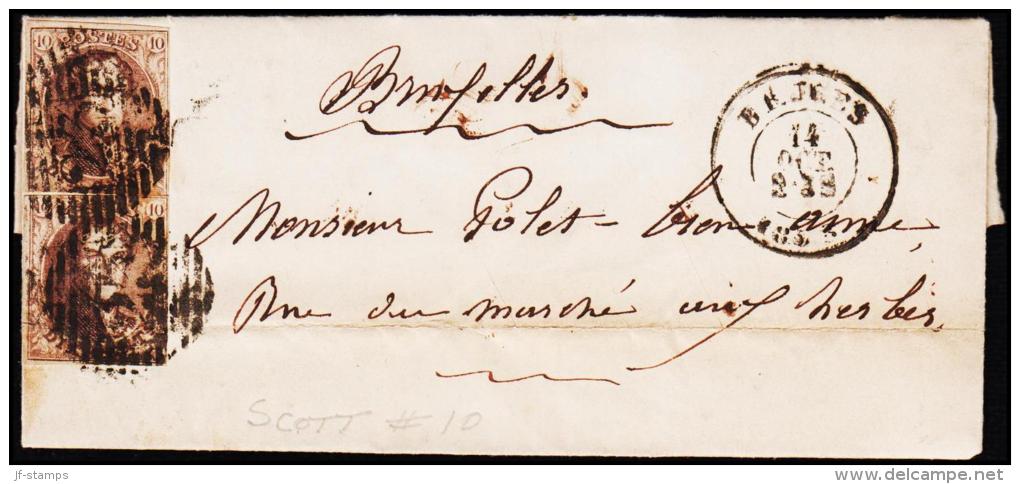 10 POSTES 10
10
Bruxelles
BRUGES
14
OCT
185
Monsieur Polet-bien aimé,
Rue du marché aux herbes,
SCOTT #10
jf-stamps
www.delcampe.net